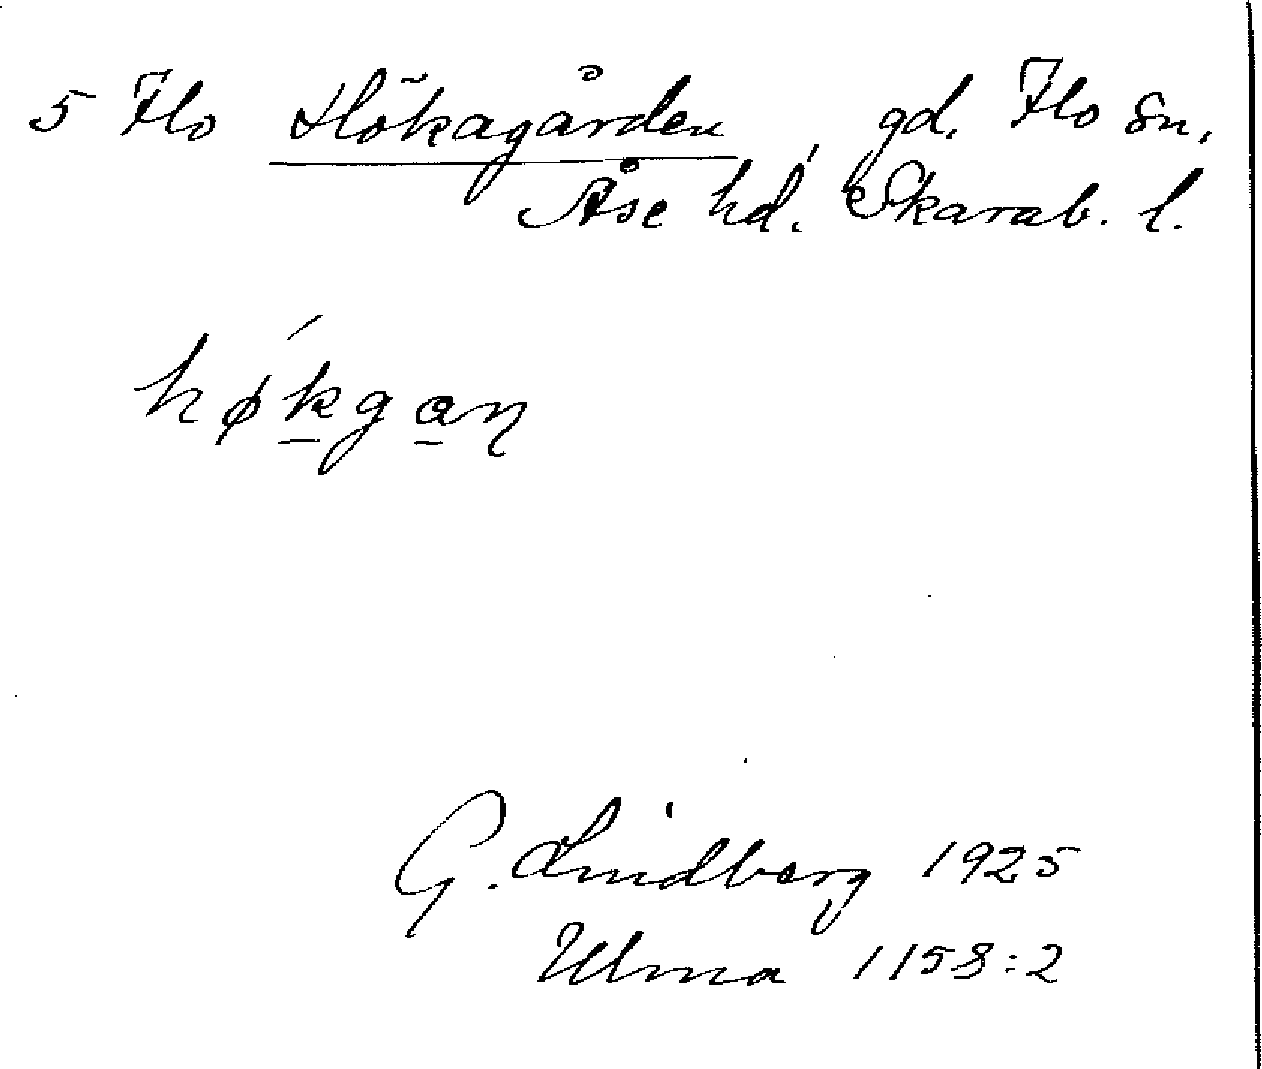 5 Flo Hökagården, gd. Flo sn,
Åse hd. Skarab. l.
hǿkgaɳ
G. Lindberg 1925
Ulma 1158:2